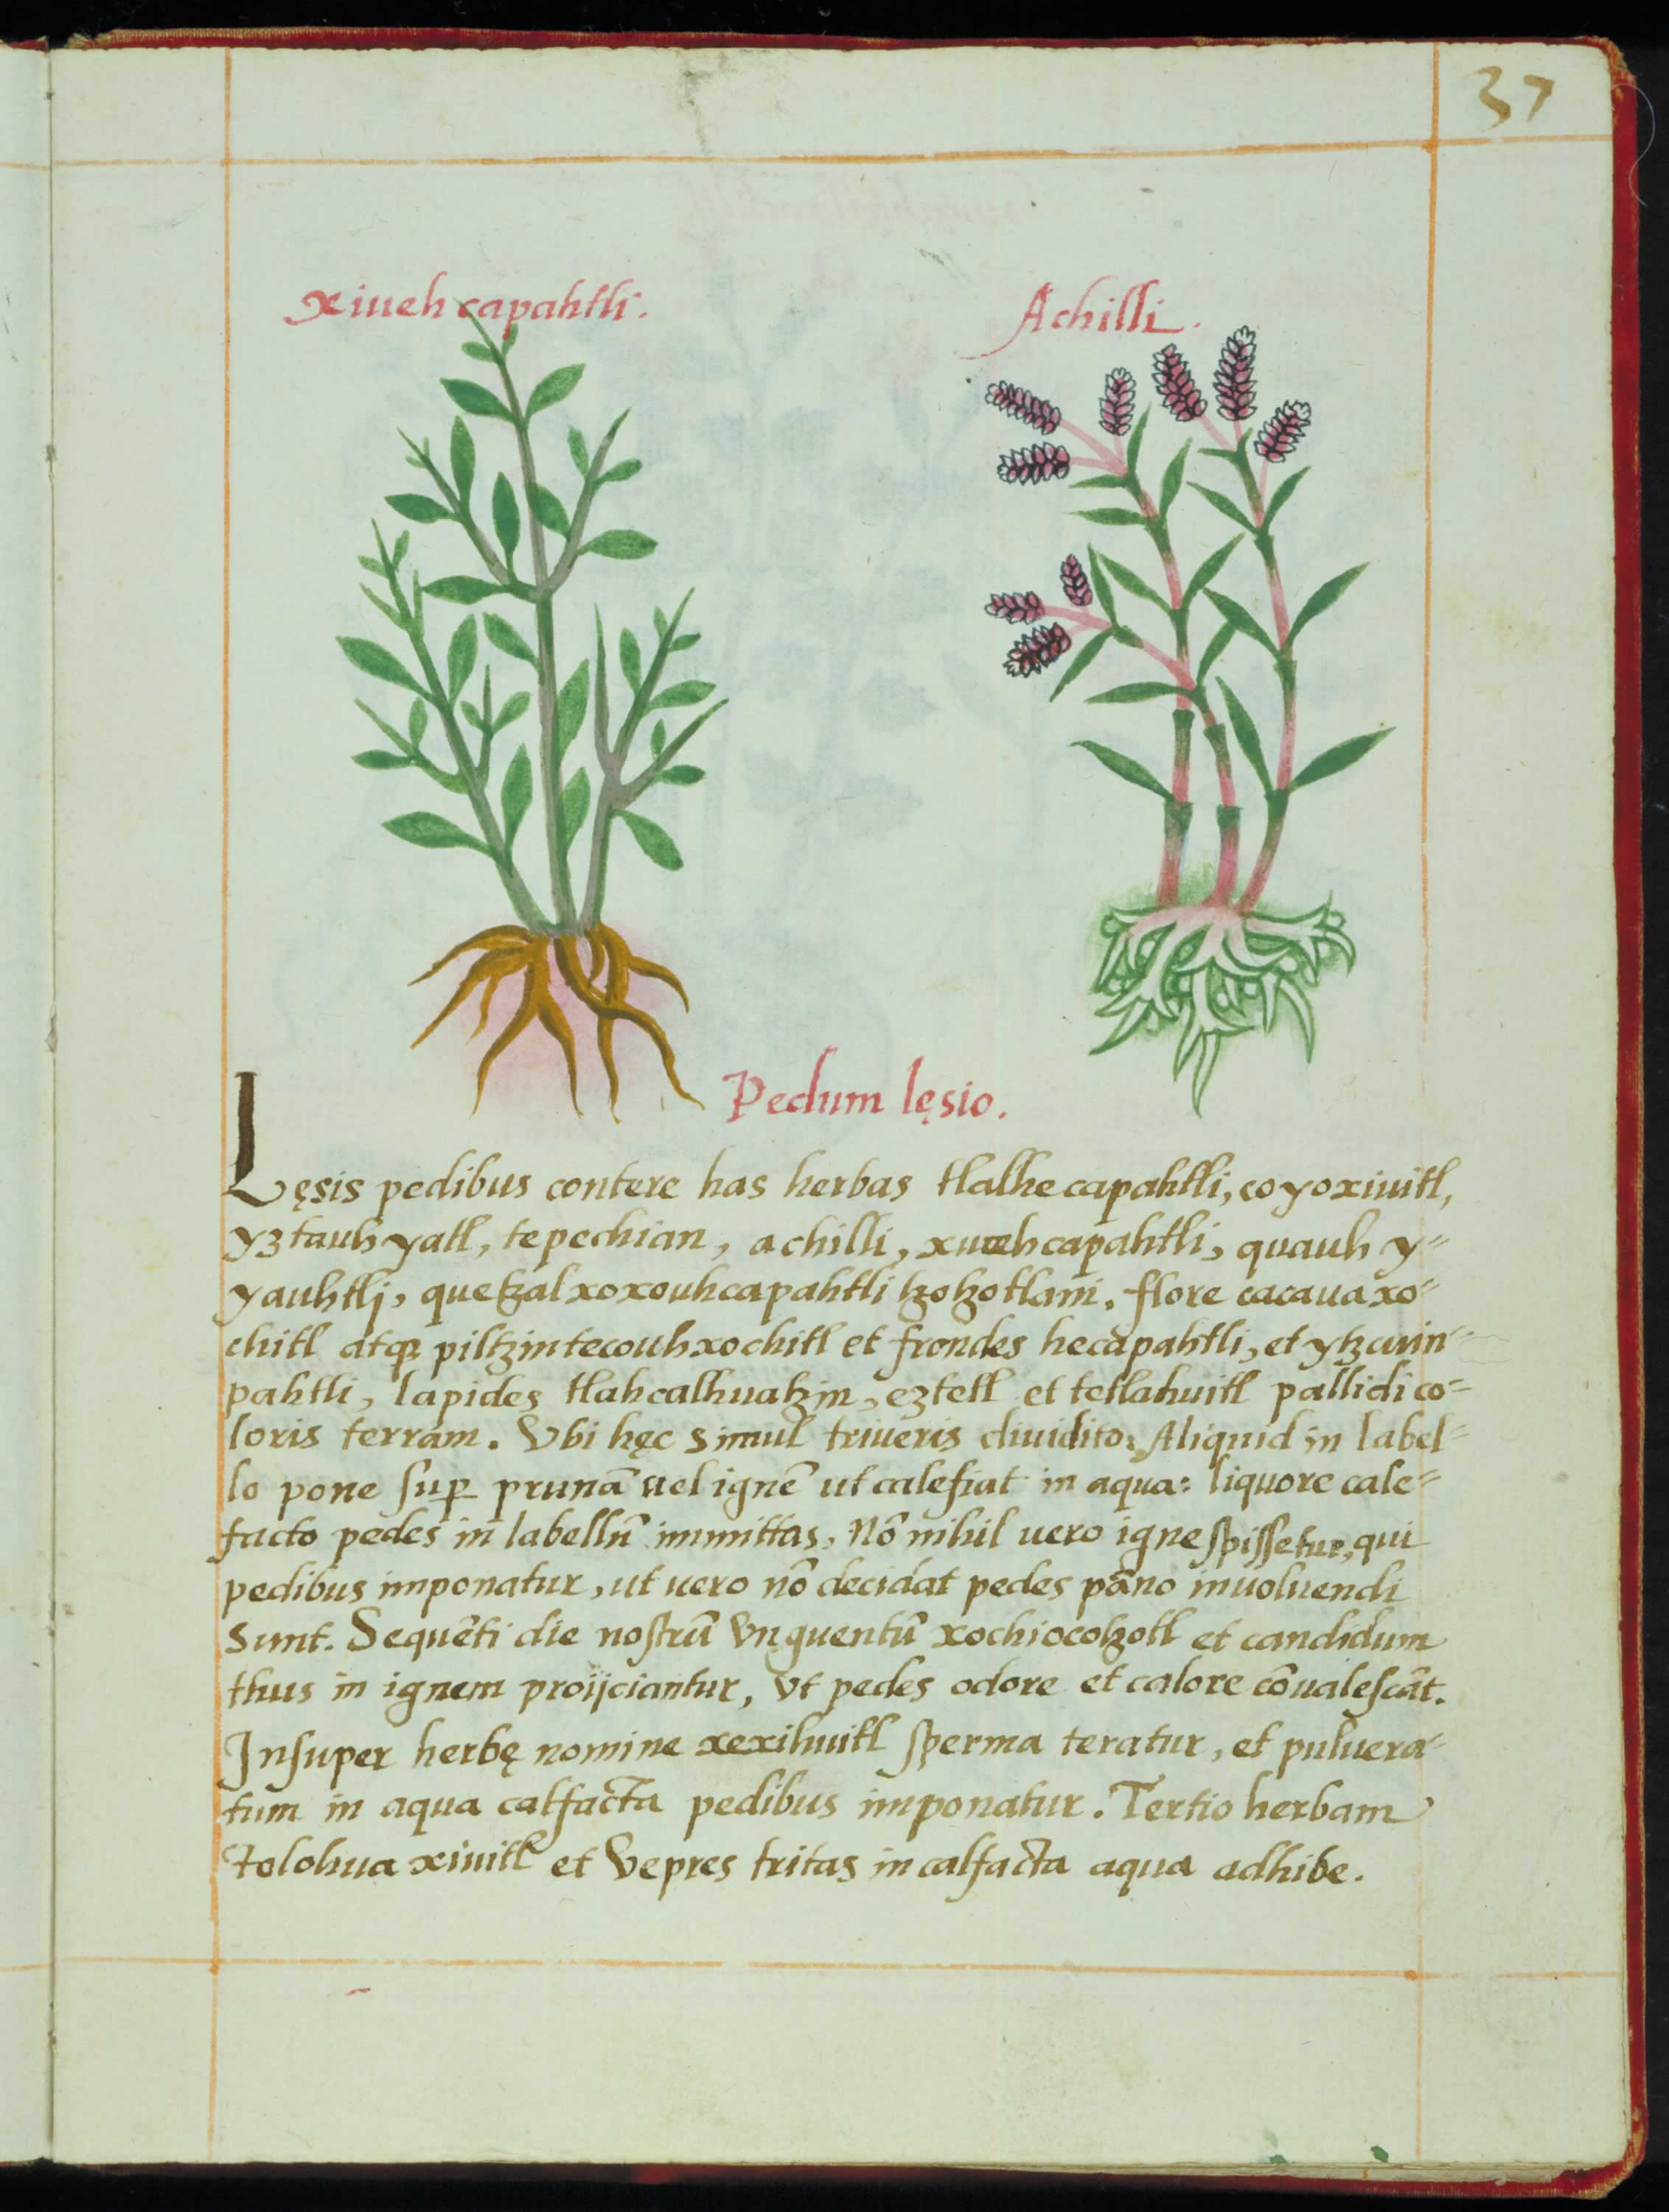 37
xiueh capahtli.
Achilli.
Pedum lęsio.
Lęsis pedibus contere has herbas tlalhecapahtli, coyoxiuitl,
yztauhyatl, tepechian, achilli, xiuehcapahtli, quauh y=
yauhtlj, quetzalxoxouhcapahtli tzotzotlani. flore cacauaxo=
chitl atqꝫ piltzintecouhxochitl et frondes hecapahtli, et ytzcuin=
pahtli, lapides tlahcalhuatzin, eztetl et tetlahuitl pallidi co=
loris terram. Vbi hęc simul triueris diuidito: Aliquid in label=
lo pone ſuꝑ prunā uel ignē ut calefiat in aqua: liquore cale=
facto pedes in labellū immittas. Nō nihil uero igne ſpiſſetur, qui
pedibus imponatur, ut uero nō decidat pedes pāno inuoluendi
sunt. Sequēti die noſtrū vnguentū xochiocotzotl et candidum
thus in ignem proijciantur, vt pedes odore et calore cōualeſcāt.
Inſuper herbę nomine xexihuitl ſperma teratur, et puluera=
tum in aqua calfacta pedibus imponatur. Tertio herbam
tolohua xiuitl et vepres tritas in calfacta aqua adhibe.